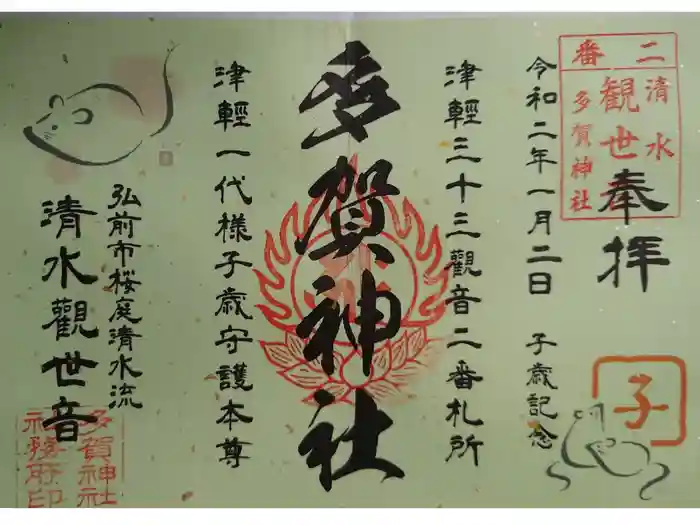 二番
清水
観世音
多賀神社
奉拝
令和二年一月二日 子歳記念
子
津輕三十三觀音二番札所
多賀神社
津輕一代様子歳守護本尊
弘前市桜庭清水流
清水觀世音
多賀神社
社務所印